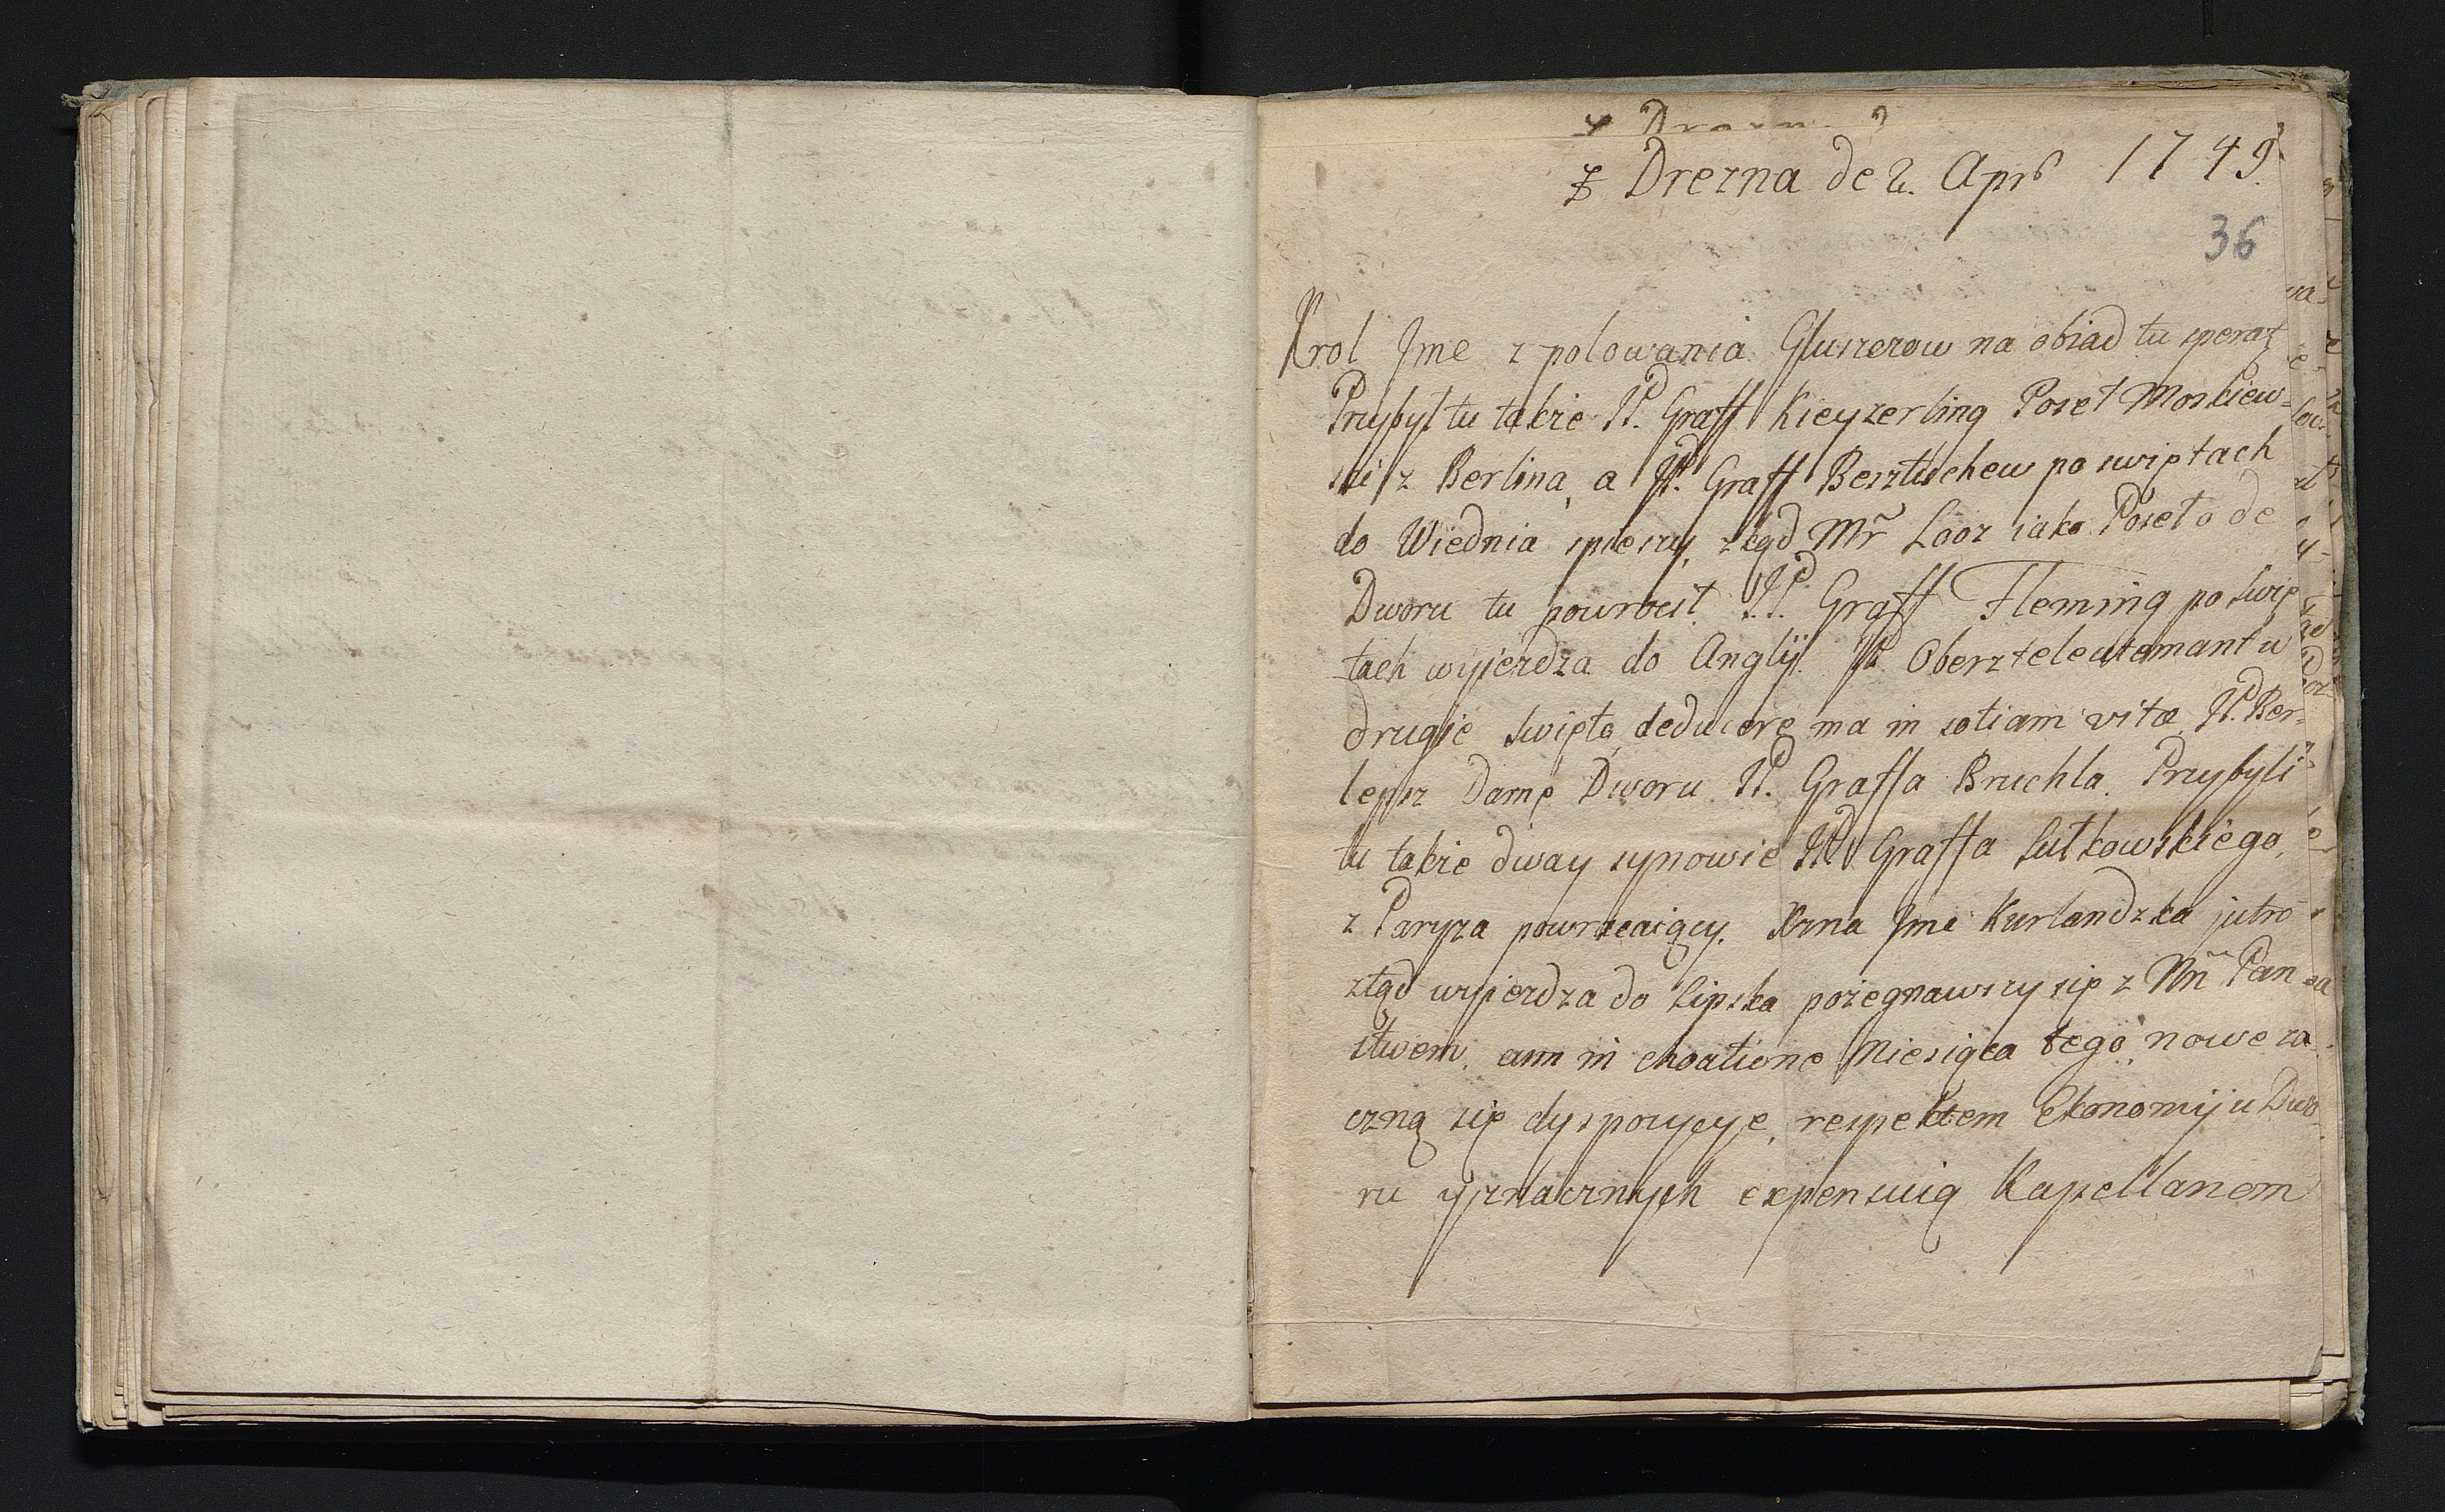 Z Drezna de 2. Apr 1749.
36
Krol Jmc z polowania Gluszcow na obiad tu sperat
Przybył tu takze JP. Graff Kieyzerling Poseł Moskiew=
ski z Berlina, a JP. Graff Besztuchew po swiętach
do Wiednia spieszy, zkąd Mr Looz iako Poseł ode
Dworu tu powrocił. JP. Graff Fleming po swię
tach wyiezdza do Anglij. JP. Oberszteleutemant w
drugie swięto deducere ma in sotiam vitæ JP. Ber=
lepsz Damę Dworu JP. Graffa Bruchla. Przybyli
tu takze dway synowie JP. Graffa Sułkowskiego,
z Paryza powracaiący. Xzna Jmc Kurlandzka jutro
ztąd wyiezdza do Lipska pozegnawszy się z Nn Pan
stwem. cum in choatione Miesiąca tego, nowe za
czną się dyspozycye, respektem Ekonomij u Dwo
ru y znacznych expensuią Kapellanom